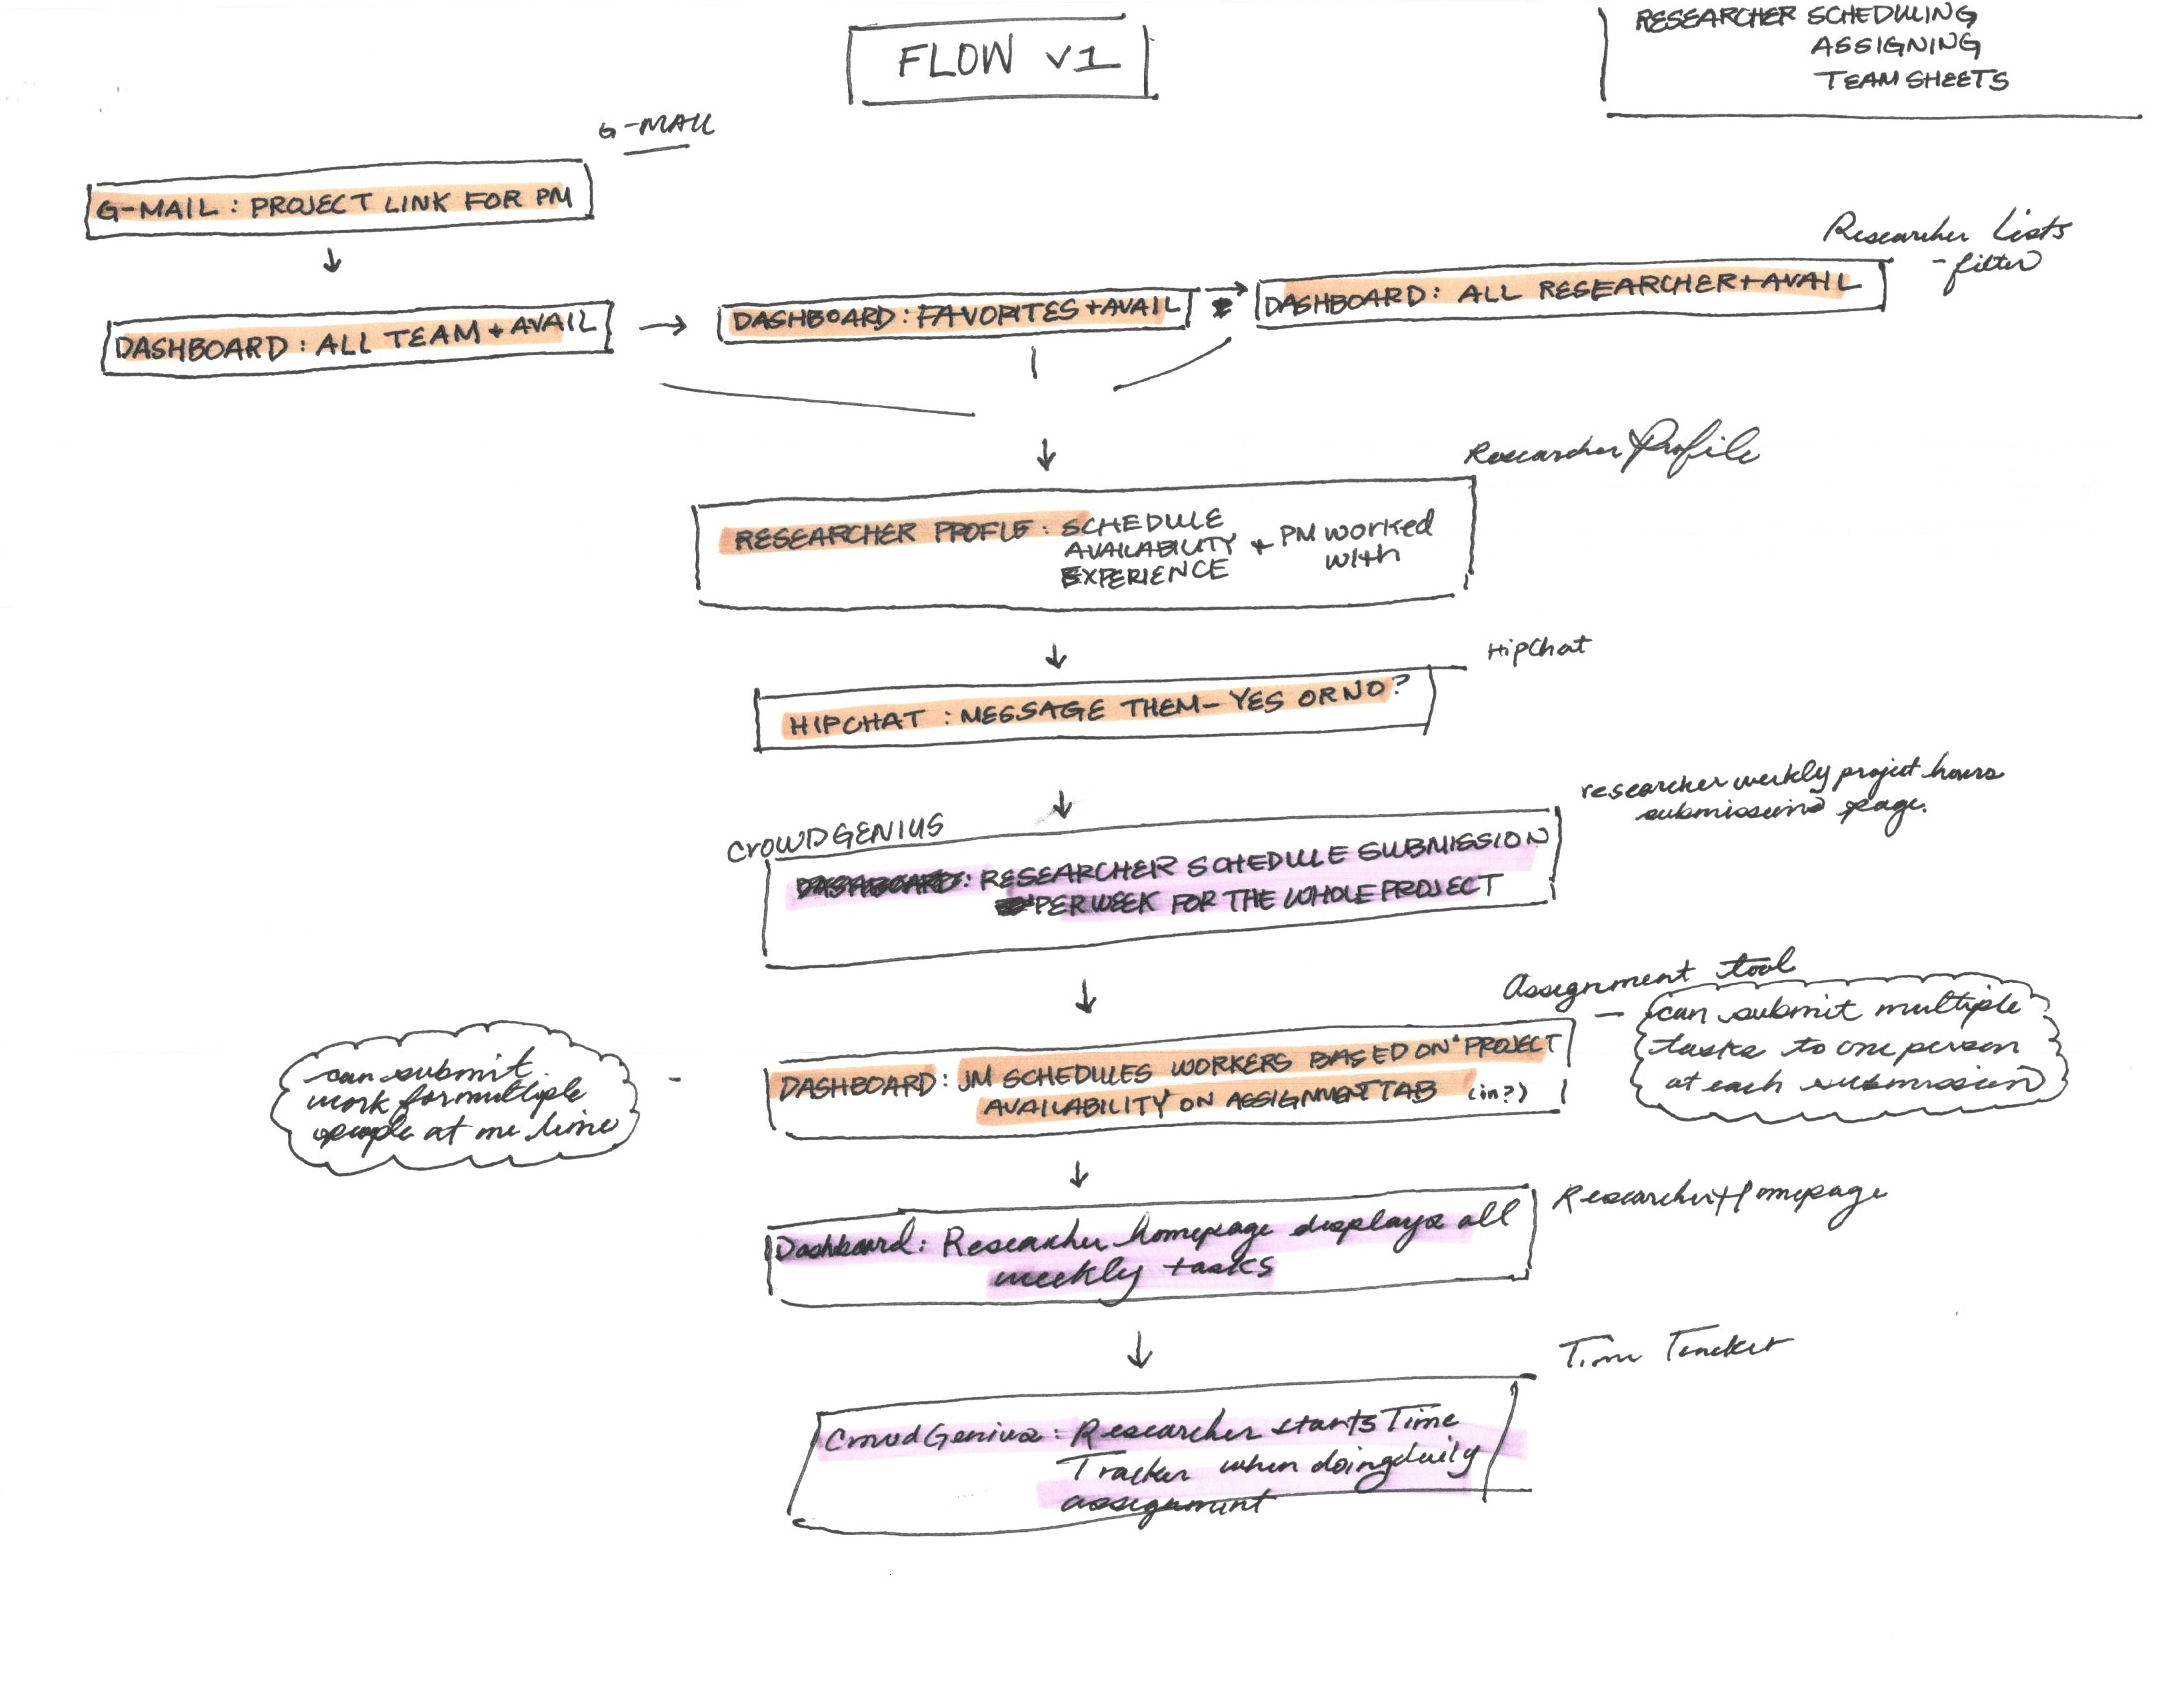 FLOW v1
RESEARCHER SCHEDULING
ASSIGNING
TEAM SHEETS
G-MAIL
G-MAIL : PROJECT LINK FOR PM
Researcher Lists
- filter
DASHBOARD : ALL TEAM + AVAIL
DASHBOARD : FAVORITES + AVAIL
DASHBOARD : ALL RESEARCHER + AVAIL
Researcher Profile
RESEARCHER PROFLE : SCHEDULE
AVAILABILITY + PM worked
EXPERIENCE with
HipChat
HIPCHAT : MESSAGE THEM - YES OR NO?
researcher weekly project hours
submissions page.
CROWDGENIUS
DASHBOARD : RESEARCHER SCHEDULE SUBMISSION
PER WEEK FOR THE WHOLE PROJECT
Assignment tool
- can submit multiple
tasks to one person
at each submission
can submit
work for multiple
people at one time
-
DASHBOARD : JM SCHEDULES WORKERS BASED ON "PROJECT
AVAILABILITY" ON ASSIGNMENT TAB (in?)
Researcher Homepage
Dashboard : Researcher homepage displays all
weekly tasks
Time Tracker
CrowdGenius : Researcher starts Time
Tracker when doing daily
assignment